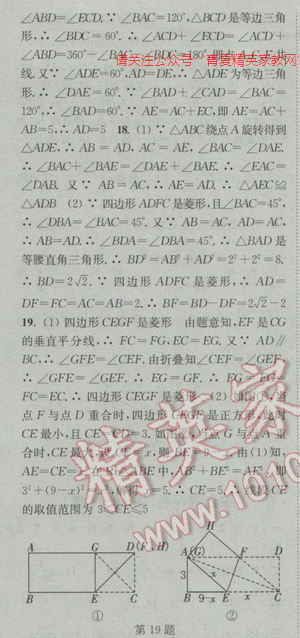 ∠ABD=∠ECD.∵∠BAC=120°,△BCD是等边三角
形,∴∠BDC=60°.∴∠ACD+∠ECD=∠ACD+
∠ABD=360°-∠BAC-∠BDC=180°,即点A、C、E共
请关注公众号 青夏精英家教网
线.又∵∠ADE=60°,AD=DE,∴△ADE为等边三角
形.∴∠DAE=60°.∵∠BAD+∠CAD=∠BAC=
120°,∴∠BAD=60°.∵AE=AC+EC,即AE=AC+
AB=5,∴AD=5 18.(1)∵△ABC绕点A旋转得到
△ADE,∴AB=AD,AC=AE,∠BAC=∠DAE.
∴∠BAC+∠BAE=∠DAE+∠BAE.∴∠EAC=
∠DAB.又∵AB=AC,∴AE=AD.∴△AEC≌
△ADB (2)∵四边形ADFC是菱形,且∠BAC=45°,
∴∠DBA=∠BAC=45°.又∵AB=AC,AD=AC,
∴AB=AD.∴∠BDA=∠DBA=45°.∴△BAD是
等腰直角三角形.∴BD²=AB²+AD²=2²+2²=8.
∴BD=2√2.∵四边形ADFC是菱形,∴AD=
DF=FC=AC=AB=2.∴BF=BD-DF=2√2-2
19.(1)四边形CEGF是菱形 由题意知,EF是CG
的垂直平分线,∴FC=FG,EC=EG.又∵AD∥
BC,∴∠GFE=∠CEF.由折叠知∠CEF=∠GEF,
∴∠GFE=∠GEF.∴EG=GF.∴EG=GF=
FC=EC.∴四边形CEGF是菱形 (2)如图①,当
点F与点D重合时,四边形CEGF是正方形,此时
CE最小,且CE=CD=3.如图②,当点G与点A重
合时,CE最大.设CE=x,则BE=9-x.由(1)知,
AE=CE=x.在Rt△ABE中,AB²+BE²=AE²,即
3²+(9-x)²=x²,解得x=5.∴CE=5.∴线段CE
的取值范围为3≤CE≤5
A G D(F、H)
B E C
①
H
A(G) F D
3 x
B 9-x E x C
②
第19题
精英家教网
1010